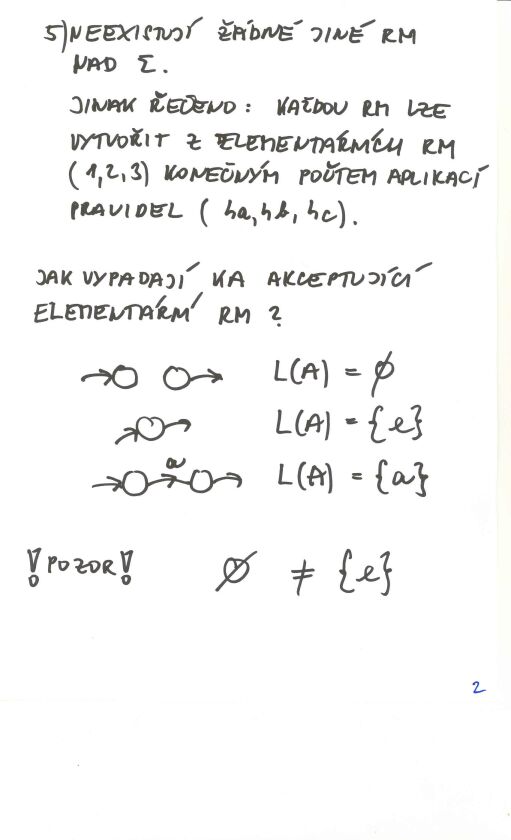 5) NEEXISTUJÍ ŽÁDNÉ JINÉ RM
NAD Σ.
JINAK ŘEČENO: KAŽDOU RM LZE
VYTVOŘIT Z ELEMENTÁRNÍCH RM
(1,2,3) KONEČNÝM POČTEM APLIKACÍ
PRAVIDEL (4a,4b,4c).
JAK VYPADAJÍ KA AKCEPTUJÍCÍ
ELEMENTÁRNÍ RM ?
L(A) = ∅
L(A) = {e}
a L(A) = {a}
! POZOR! ∅ ≠ {e}
2